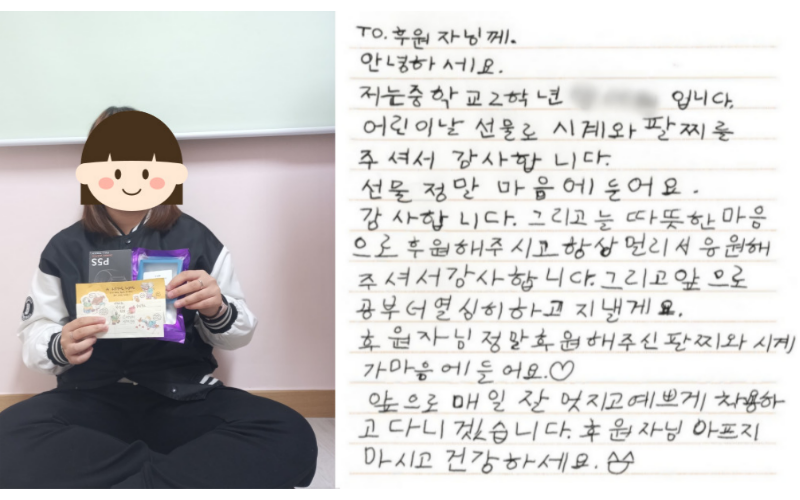 TO. 후원자님께.
안녕하세요.
저는중학교2학년 입니다.
어린이날 선물로 시계와 팔찌를
주셔서 감사합니다.
선물 정말 마음에 들어요.
감사합니다. 그리고늘 따뜻한마음
으로 후원해주시고항상멀리서응원해
주셔서감사합니다.그리고앞으로
공부더열심히하고 지낼게요.
후원자님정말후원해주신팔찌와시계
가마음에들어요.♡
앞으로매일 잘 멋지고예쁘게착용하
고다니겠습니다.후원자님아프지
마시고 건강하세요.
PSS